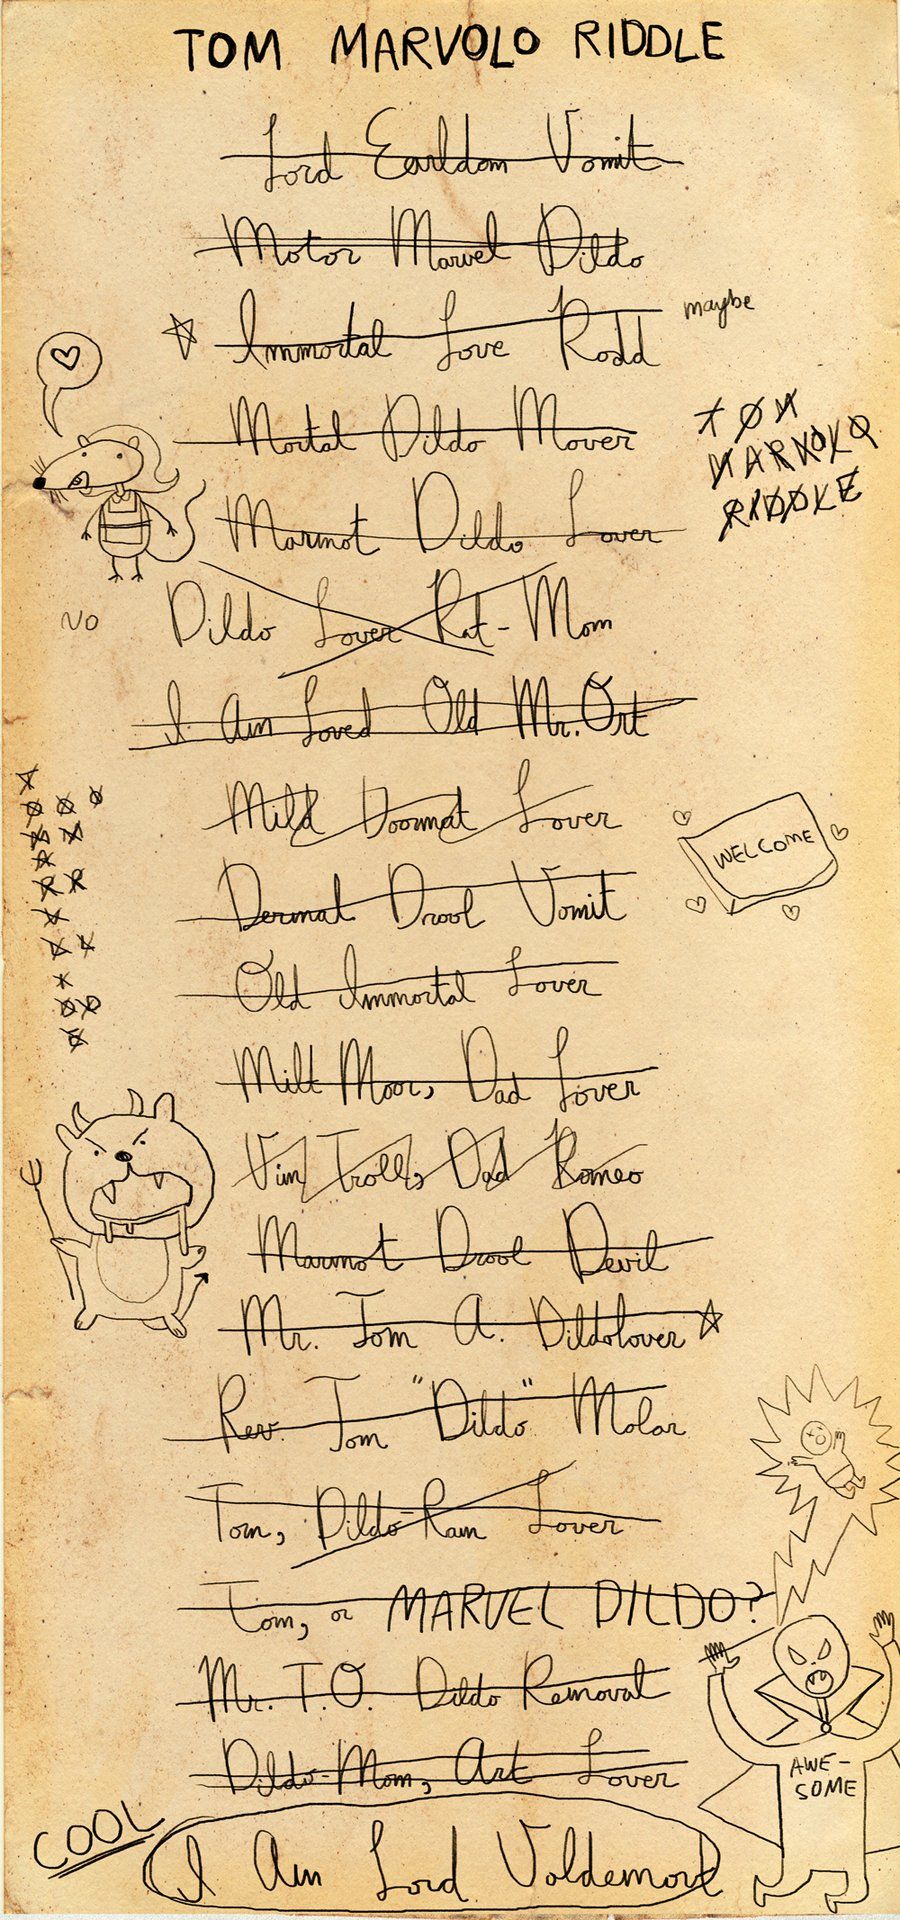 TOM MARVOLO RIDDLE
Lord Earldom Vomit
Motor Marvel Dildo
Immortal Love Rodd
maybe
Mortal Dildo Mover
TOM
MARVOLO
RIDDLE
Marmot Dildo Lover
NO
Dildo Lover Rat-Mom
I Am Loved Old Mr. Ort
Mild Doormat Lover
WELCOME
Dermal Drool Vomit
Old Immortal Lover
Milt Moor, Dad Lover
Vim Troll, Dad Romeo
Marmot Drool Devil
Mr. Tom A. Dildolover
Rev. Tom "Dildo" Molar
Tom, Dildo-Ram Lover
Tom, or MARVEL DILDO?
Mr. T.O. Dildo Removal
Dildo-Mom, Art Lover
AWE-
SOME
COOL
I Am Lord Voldemort